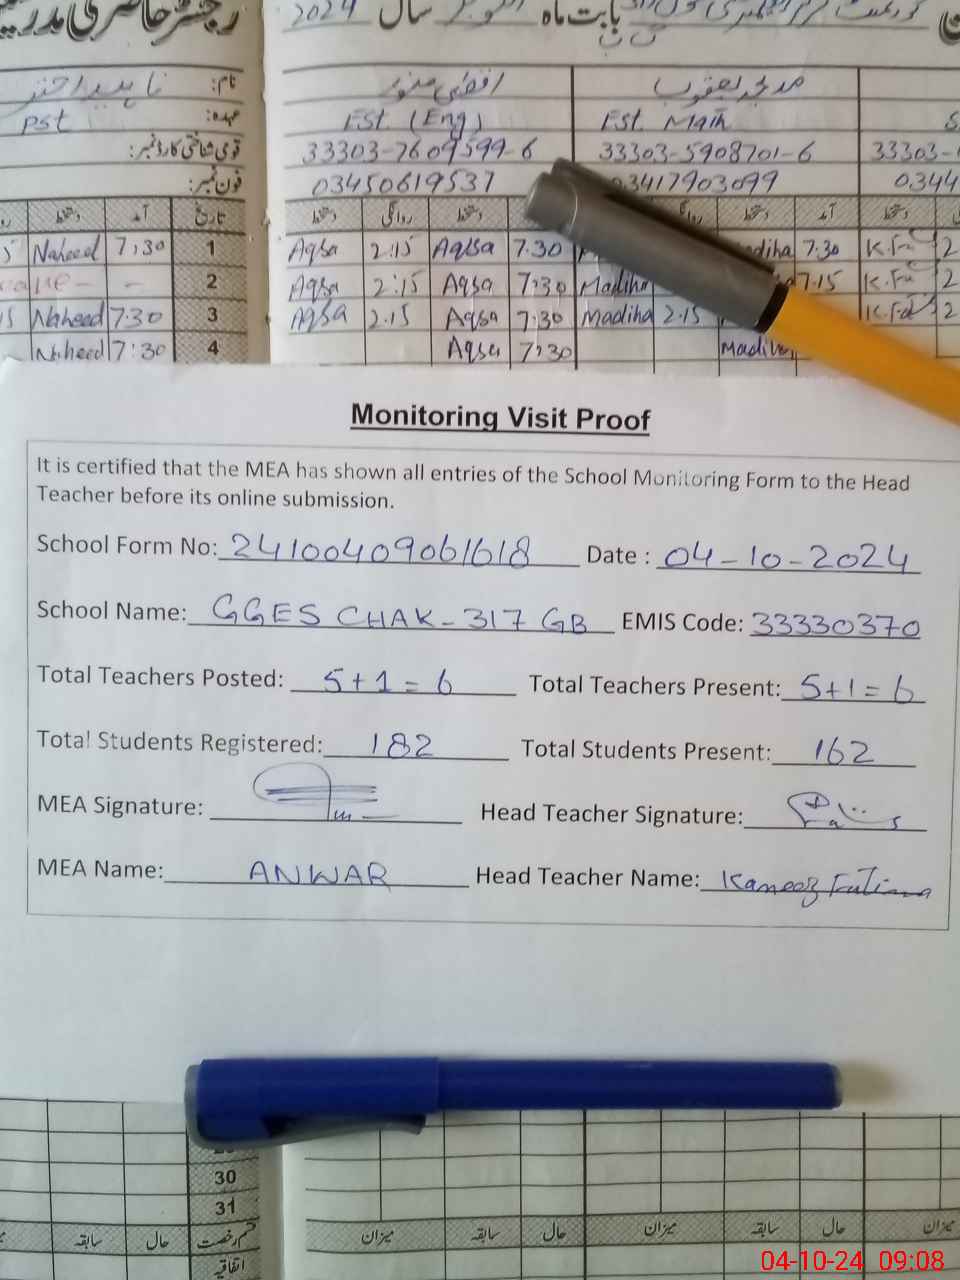 رجسٹر حاضری مدرسین
بابت ماہ اکتوبر سال 2024
نام: ناہید اختر
اقصیٰ منور
مدیحہ یعقوب
عہدہ: PST
EST. (Eng)
EST. Math
قومی شناختی کارڈ نمبر:
33303-7609599-6
33303-5908701-6
33303-
فون نمبر:
03450619537
03417903099
0344
تاریخ آمد دستخط
آمد دستخط روانگی دستخط
آمد دستخط روانگی دستخط
1 7:30 Naheed
Aqsa 2:15 Aqsa 7:30 7:30 K.Fa 2
2 - -
Aqsa 2:15 Aqsa 7:30 Madiha 7:15 K.Fa 2
3 7:30 Naheed
Aqsa 2:15 Aqsa 7:30 Madiha 2:15 K.Fa 2
4 7:30 Naheed
Aqsa 7:30 Madiha
Monitoring Visit Proof
It is certified that the MEA has shown all entries of the School Monitoring Form to the Head
Teacher before its online submission.
School Form No: 24100409061618 Date : 04-10-2024
School Name: GGES CHAK-317 GB EMIS Code: 33330370
Total Teachers Posted: 5+1=6 Total Teachers Present: 5+1=6
Total Students Registered: 182 Total Students Present: 162
MEA Signature: Head Teacher Signature:
MEA Name: ANWAR Head Teacher Name: Kaneez Fatima
30
31
قسم رخصت حال سابقہ
حال سابقہ میزان حال سابقہ میزان
اتفاقیہ
04-10-24 09:08